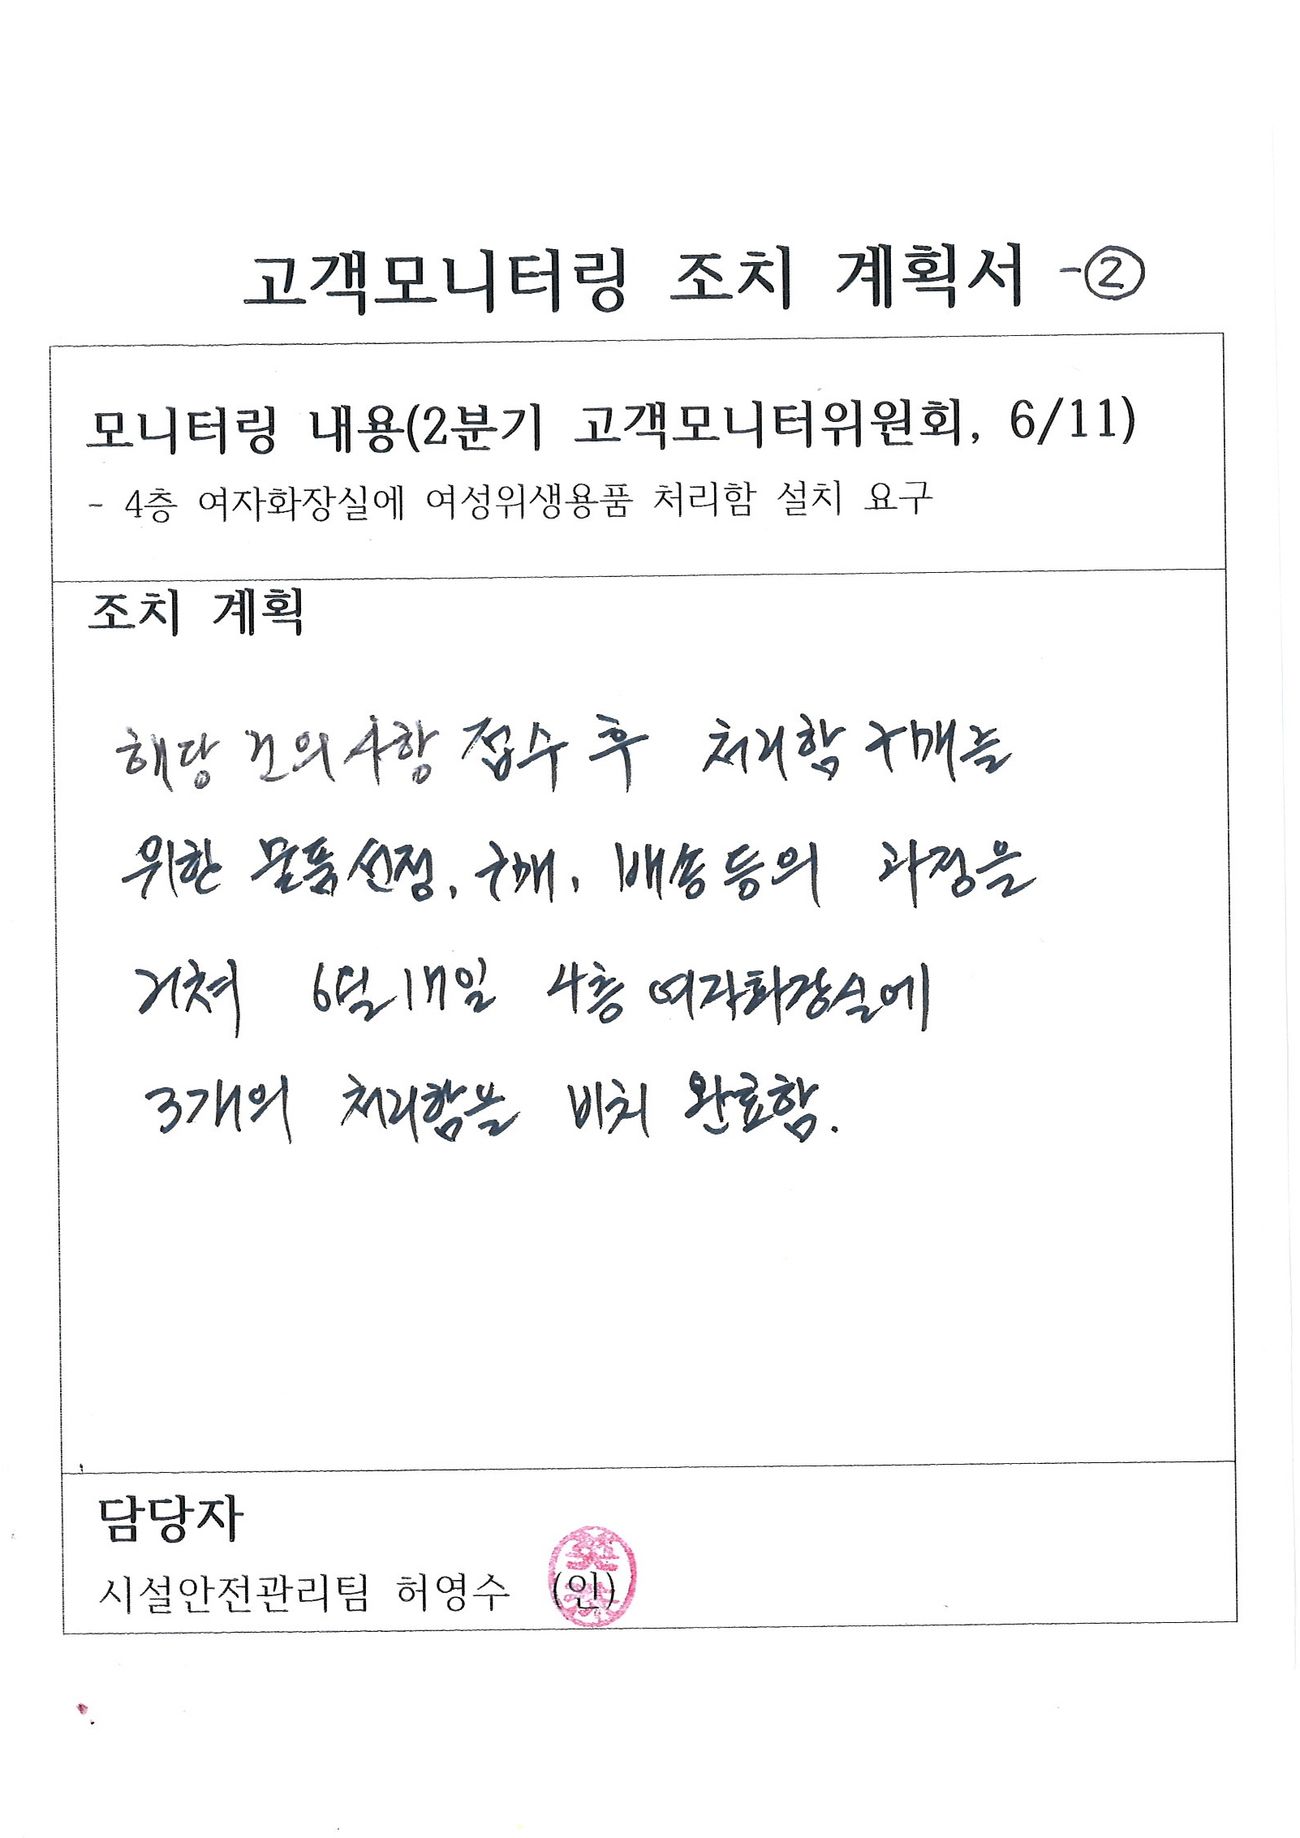 고객모니터링 조치 계획서 -②
모니터링 내용(2분기 고객모니터위원회, 6/11)
- 4층 여자화장실에 여성위생용품 처리함 설치 요구
조치 계획
해당 건의사항 접수 후 처리함 구매를
위한 물품선정, 구매, 배송 등의 과정을
거쳐 6월 17일 4층 여자화장실에
3개의 처리함을 비치 완료함.
담당자
시설안전관리팀 허영수 (인)